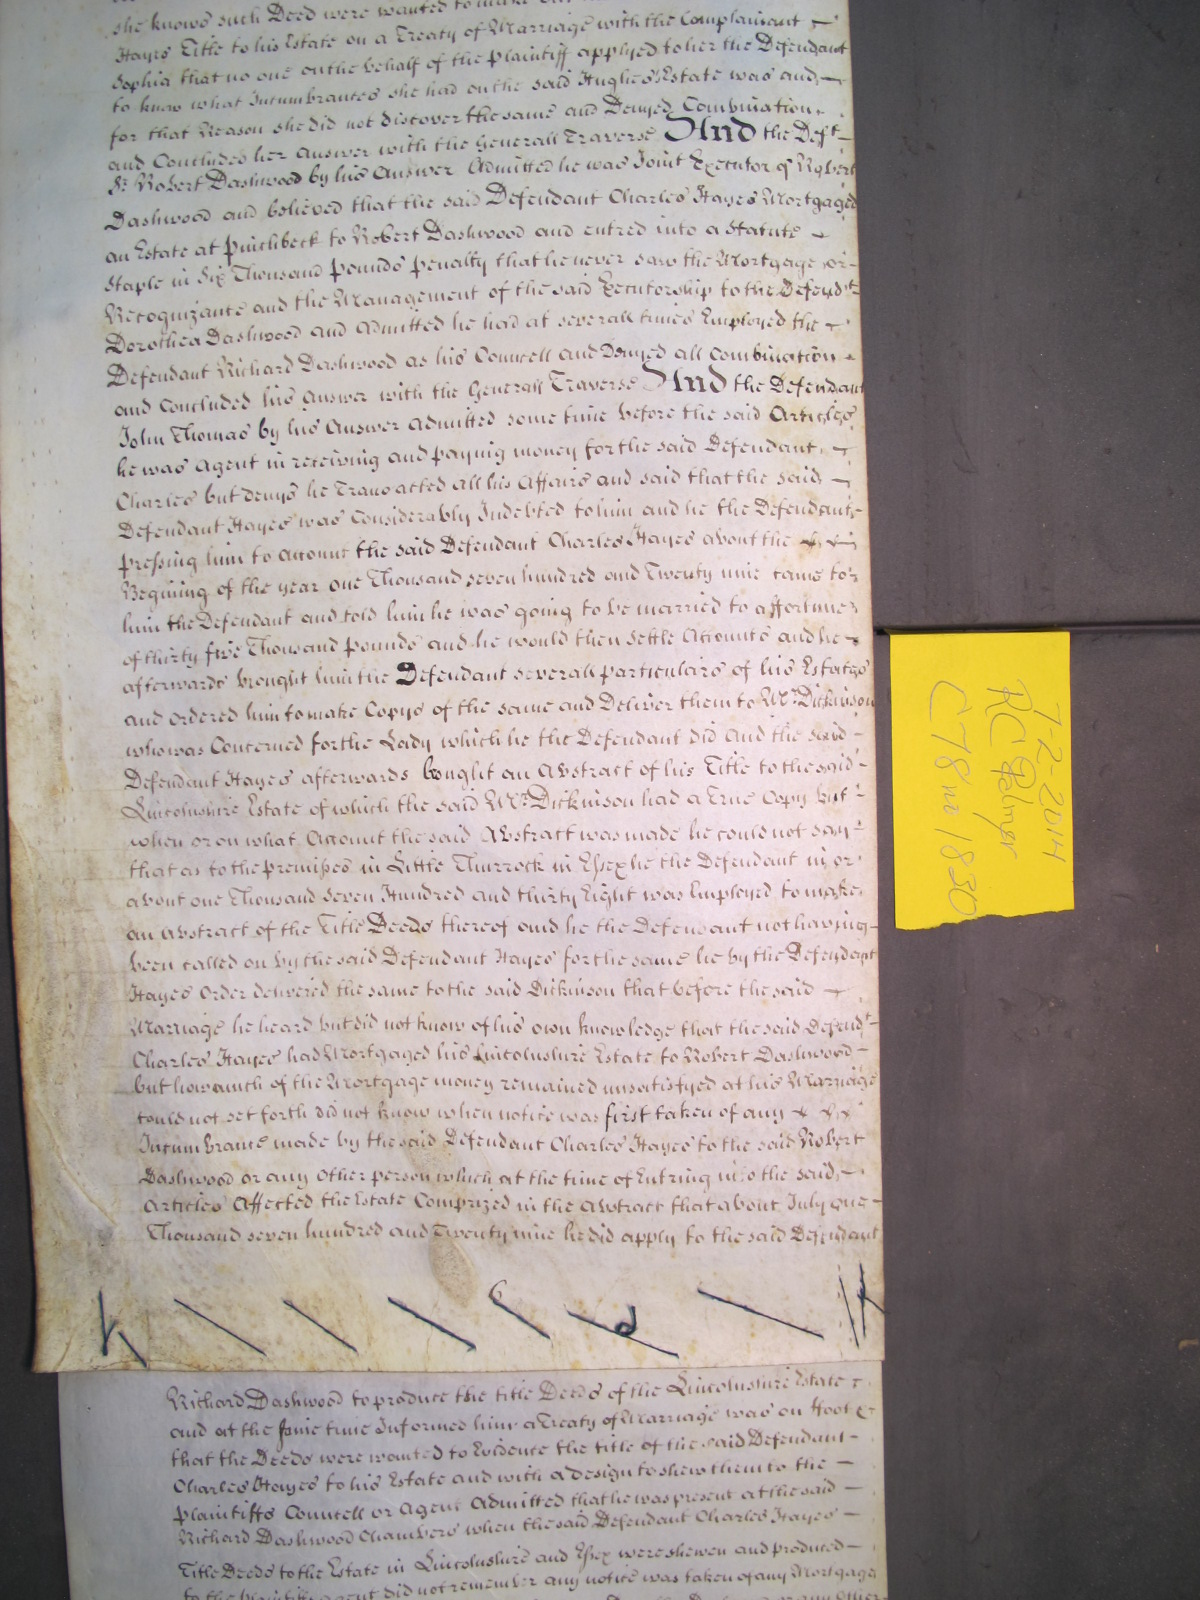 she knows such Deed were wanted to make out
Hayes Title to his Estate on a Treaty of Marriage with the Complainant
Sophia that no one on the behalf of the Plaintiff applyed to her the Defendant
to know what Incumbrances she had on the said Hughes Estate was and
for that Reason she did not discover the same and Denyed Combination
and Concludes her Answer with the Generall Traverse And the Deft
Sr Robert Dashwood by his Answer Admitted he was Joint Executor of Robert
Dashwood and believed that the said Defendant Charles Hayes Mortgaged
an Estate at Pinchbeck to Robert Dashwood and entred into a Statute
Staple in Six Thousand pounds penalty that he never saw the Mortgage or
Recognizance and the Management of the said Executorship to the Defendt
Dorothea Dashwood and Admitted he had at severall times Employed the
Defendant Richard Dashwood as his Councell and Denyed all Combination
and Concluded his Answer with the Generall Traverse And the Defendant
John Thomas by his Answer Admitted some time before the said Articles
he was Agent in receiving and paying money for the said Defendant
Charles but denys he Transacted all his Affairs and said that the said
Defendant Hayes was Considerably Indebted to him and he the Defendant
pressing him to Account the said Defendant Charles Hayes about the
Begining of the year one Thousand seven hundred and Twenty nine came to
him the Defendant and told him he was going to be married to a ffortune
of thirty five Thousand pounds and he would then settle Accounts and he
afterwards brought him the Defendant severall particulars of his Estates
and ordered him to make Copys of the same and Deliver them to Mr Dickinson
who was Concerned for the Lady which he the Defendant did And the said
Defendant Hayes afterwards bought an Abstract of his Title to the said
Lincolnshire Estate of which the said Mr Dickinson had a True Copy but
when or on what Account the said Abstract was made he could not say
that as to the premisses in Little Thurrock in Essex he the Defendant in or
about one Thousand seven Hundred and thirty Eight was Employed to make
an Abstract of the Title Deeds thereof and he the Defendant not having
been called on by the said Defendant Hayes for the same he by the Defendant
Hayes Order delivered the same to the said Dickinson that before the said
Marriage he heard but did not know of his own knowledge that the said Defendt
Charles Hayes had Mortgaged his Lincolnshire Estate to Robert Dashwood
but how much of the Mortgage money remained unsatisfyed at his Marriage
could not set forth did not know when notice was first taken of any
Incumbrance made by the said Defendant Charles Hayes to the said Robert
Dashwood or any other person which at the time of Entring into the said
Articles Affected the Estate Comprized in the Abstract that about July one
Thousand seven hundred and Twenty nine he did apply to the said Defendant
6
Richard Dashwood to produce the title Deeds of the Lincolnshire Estate
and at the same time Informed him a Treaty of Marriage was on Foot &
that the Deeds were wanted to Evidence the title of the said Defendant
Charles Hayes to his Estate and with a design to shew them to the
Plaintiffs Councell or Agent Admitted that he was present at the said
Richard Dashwood Chambers when the said Defendant Charles Hayes
Title Deeds to the Estate in Lincolnshire and Essex were shewen and produced
to the Plaintiffs agent did not remember any notice was taken of any Mortgage
7-2-2014
RC Palmer
C78 no 1830